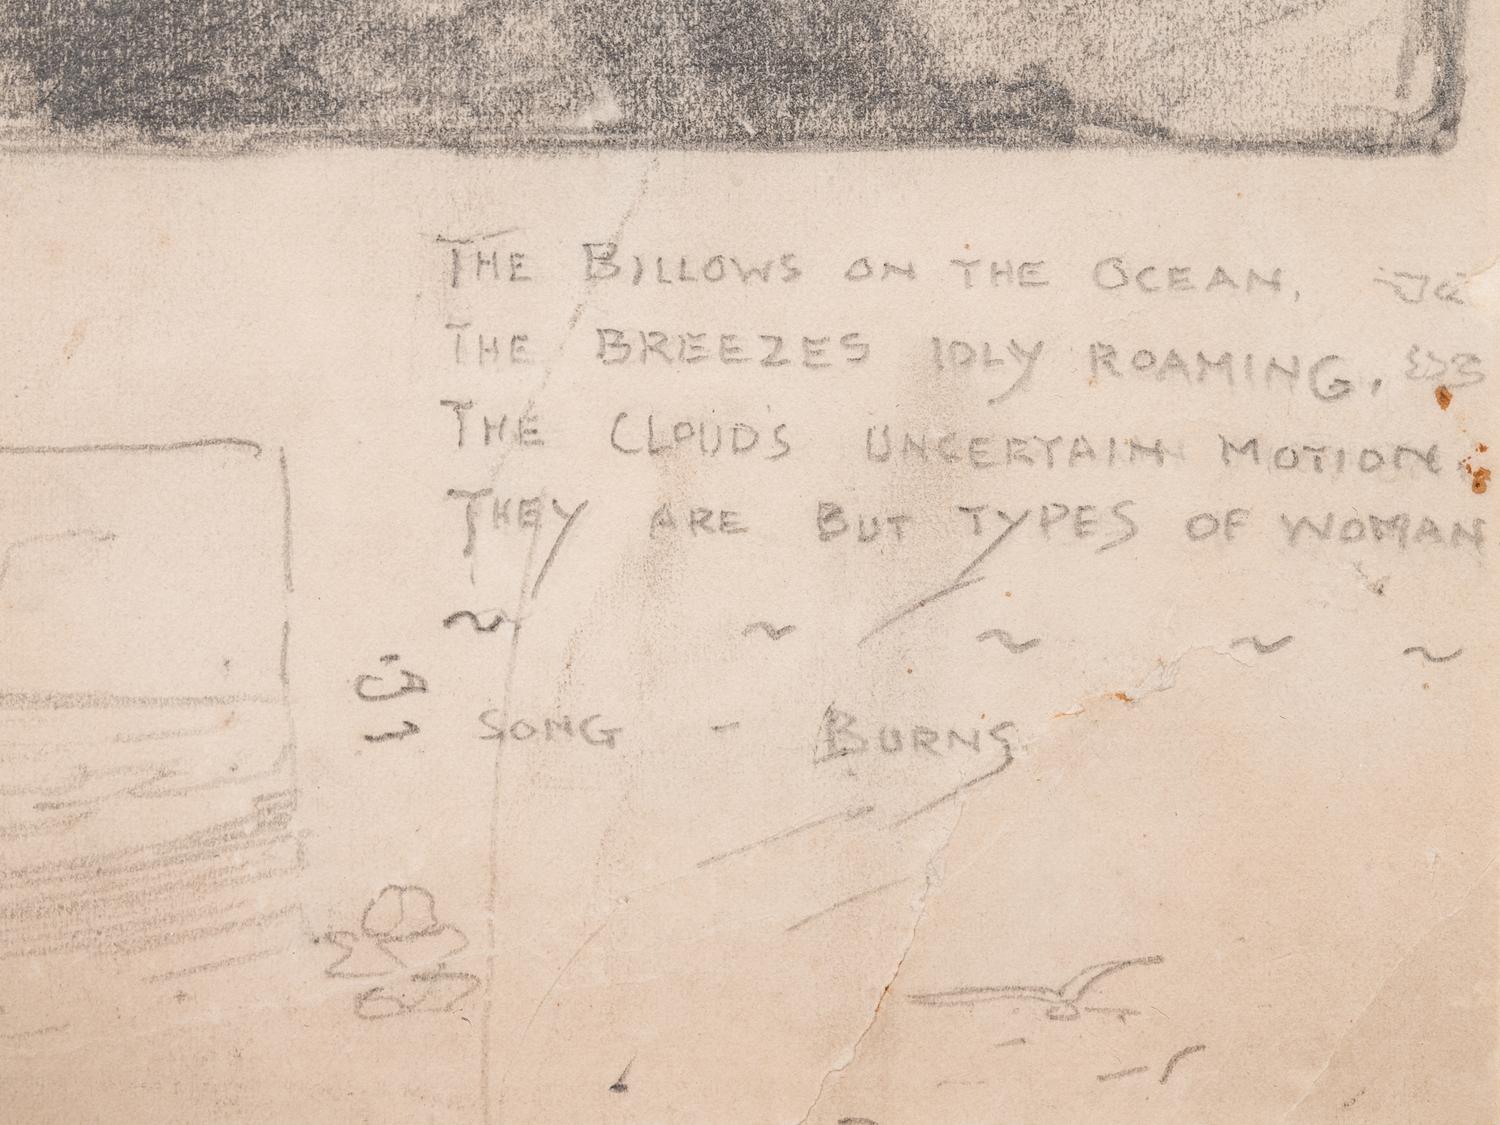 THE BILLOWS ON THE OCEAN,
THE BREEZES IDLY ROAMING,
THE CLOUDS UNCERTAIN MOTION,
THEY ARE BUT TYPES OF WOMAN
~ ~ ~ ~ ~
SONG - BURNS